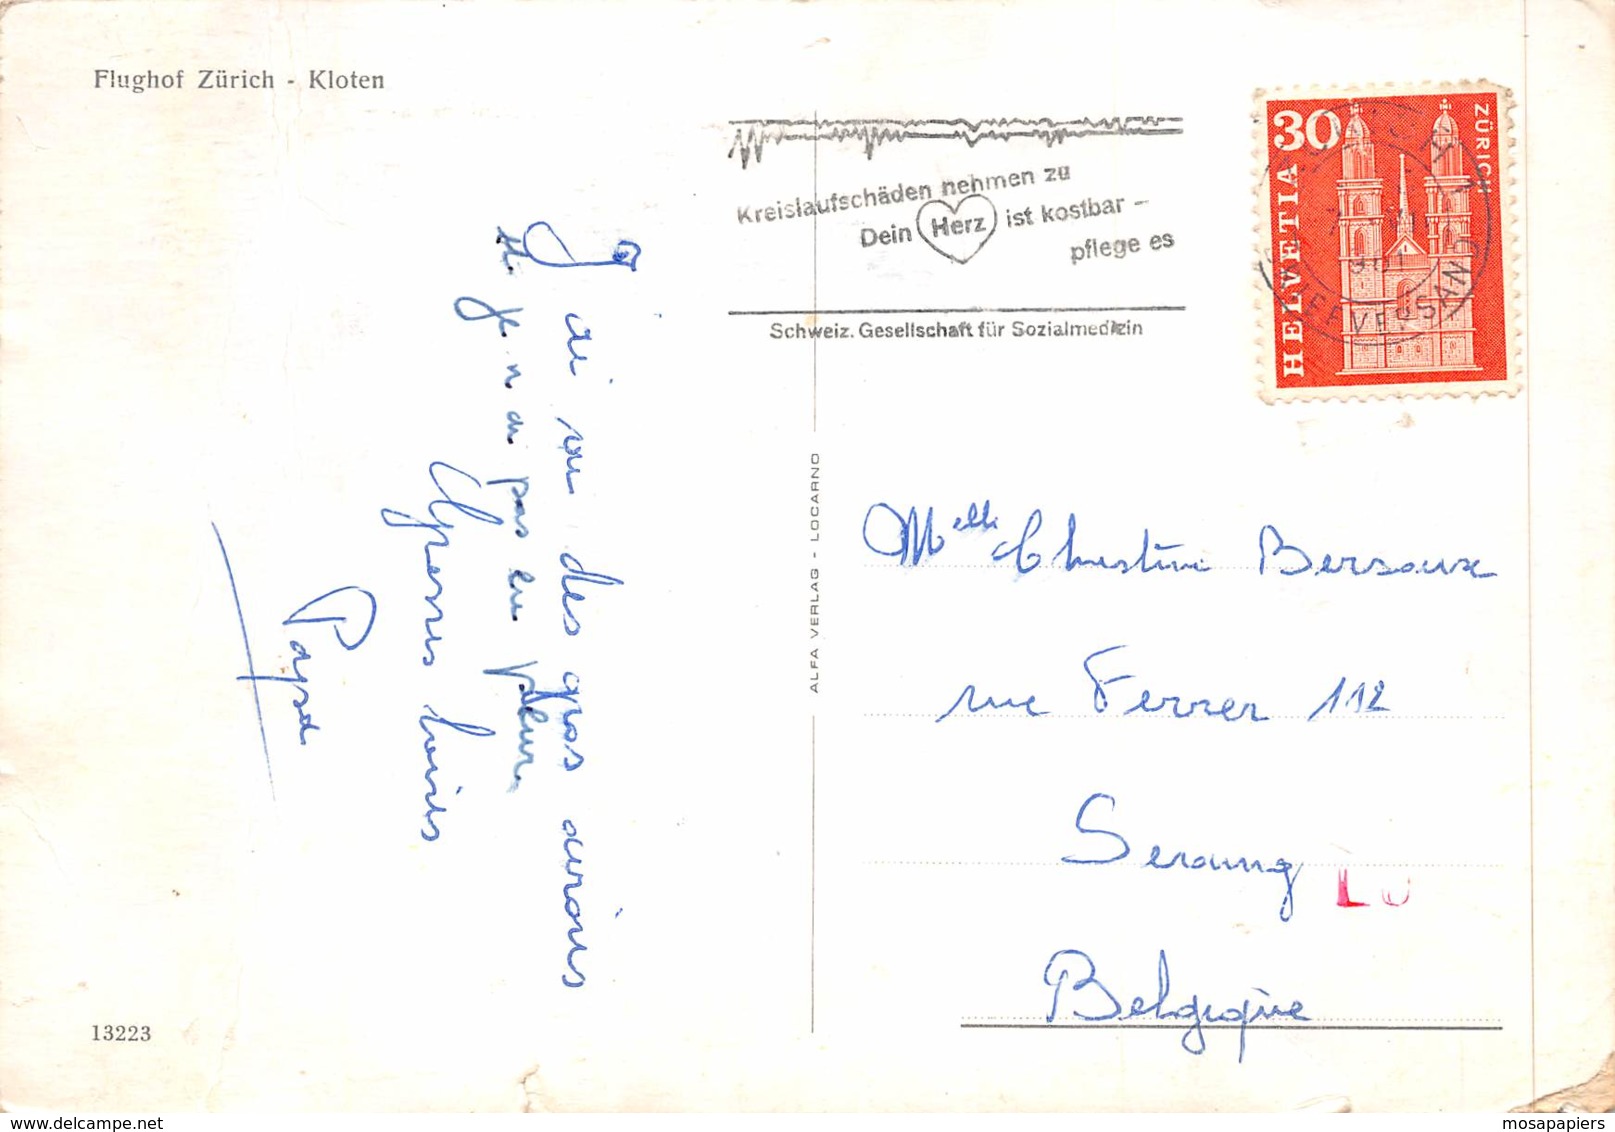 Flughof Zürich - Kloten
J'ai vu des gros avions
et je n'ai pas eu peur
Grosses baises
Papa
13223
ALFA VERLAG - LOCARNO
Kreislaufschäden nehmen zu
Dein Herz ist kostbar -
pflege es
Schweiz. Gesellschaft für Sozialmedizin
30
HELVETIA
ZÜRICH
BRIEFVERSAND
Melle Christine Bersoux
rue Ferrer 112
Seraing
Belgique
delcampe.net
mosapapiers